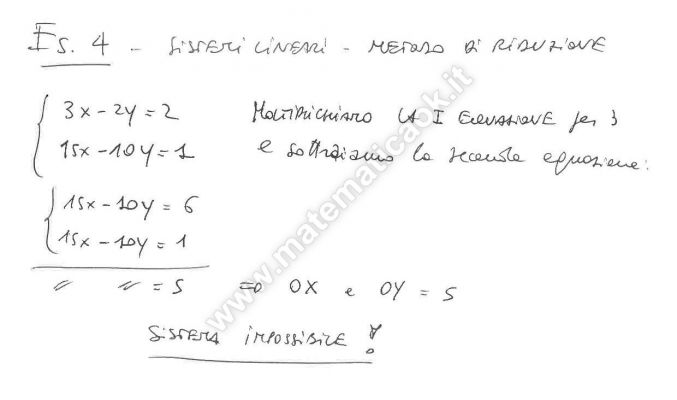 Es. 4 - SISTEMI LINEARI - METODO DI RIDUZIONE
3x - 2y = 2 MOLTIPLICHIAMO LA I EQUAZIONE per 3
15x - 10y = 1 e sottraiamo la seconda equazione:
15x - 10y = 6
15x - 10y = 1
// // = 5 => 0X e 0Y = 5
SISTEMA IMPOSSIBILE!
www.matematicaok.it